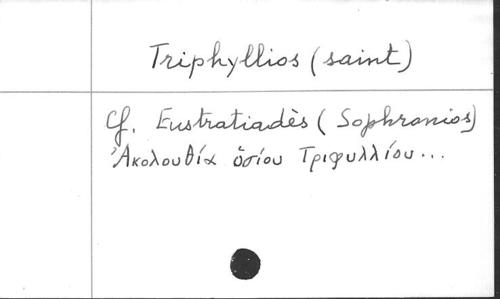 Triphyllios (saint)
Cf. Eustratiadès (Sophronios)
Ἀκολουθία ὁσίου Τριφυλλίου...